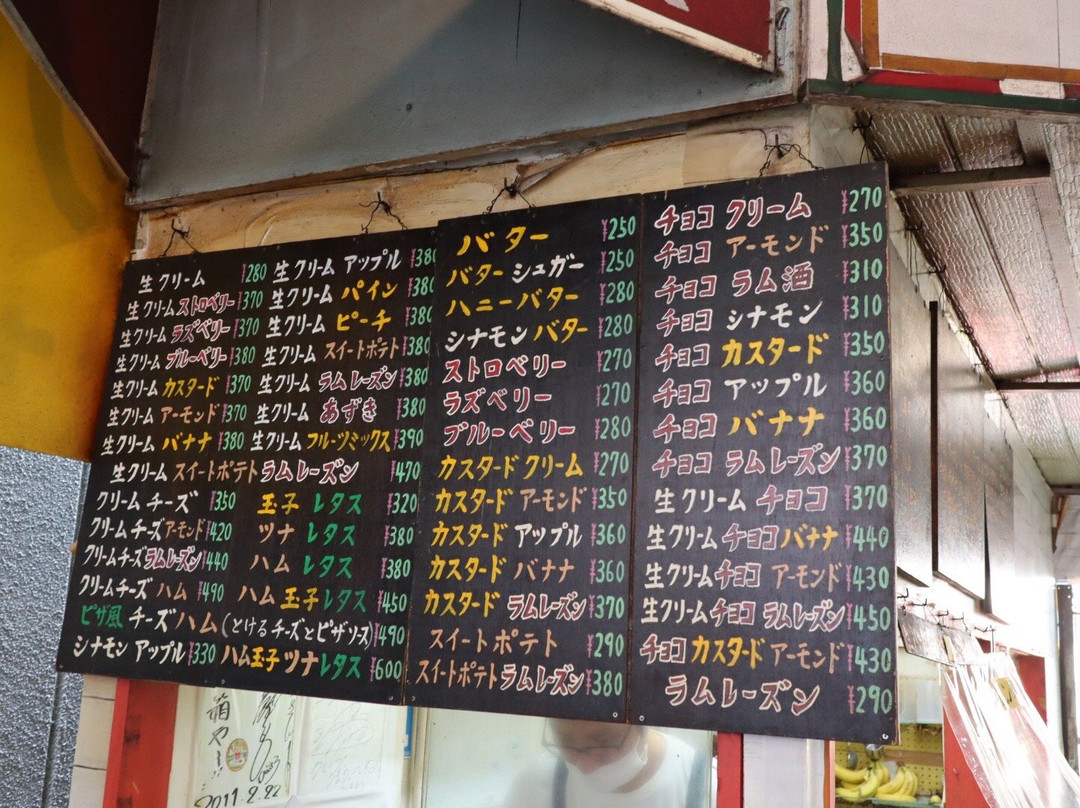 生クリーム ¥280
生クリームストロベリー ¥370
生クリーム ラズベリー ¥370
生クリーム ブルーベリー ¥380
生クリーム カスタード ¥370
生クリーム アーモンド ¥370
生クリーム バナナ ¥380
生クリーム アップル ¥380
生クリーム パイン ¥380
生クリーム ピーチ ¥380
生クリーム スイートポテト ¥380
生クリーム ラムレーズン ¥380
生クリーム あずき ¥380
生クリーム フルーツミックス ¥390
生クリーム スイートポテト ラムレーズン ¥470
クリームチーズ ¥350
クリームチーズアーモンド ¥420
クリームチーズラムレーズン ¥440
クリームチーズ ハム ¥490
玉子 レタス ¥320
ツナ レタス ¥380
ハム レタス ¥380
ハム 玉子レタス ¥450
ピザ風 チーズハム(とけるチーズとピザソース) ¥490
シナモン アップル ¥330
ハム玉子ツナレタス ¥600
バター ¥250
バター シュガー ¥250
ハニーバター ¥280
シナモンバター ¥280
ストロベリー ¥270
ラズベリー ¥270
ブルーベリー ¥280
カスタード クリーム ¥270
カスタード アーモンド ¥350
カスタード アップル ¥360
カスタード バナナ ¥360
カスタード ラムレーズン ¥370
スイートポテト ¥290
スイートポテトラムレーズン ¥380
チョコ クリーム ¥270
チョコ アーモンド ¥350
チョコ ラム酒 ¥310
チョコ シナモン ¥310
チョコ カスタード ¥350
チョコ アップル ¥360
チョコ バナナ ¥360
チョコ ラムレーズン ¥370
生クリーム チョコ ¥370
生クリームチョコバナナ ¥440
生クリームチョコ アーモンド ¥430
生クリームチョコ ラムレーズン ¥450
チョコカスタード アーモンド ¥430
ラムレーズン ¥290
2011.2.22